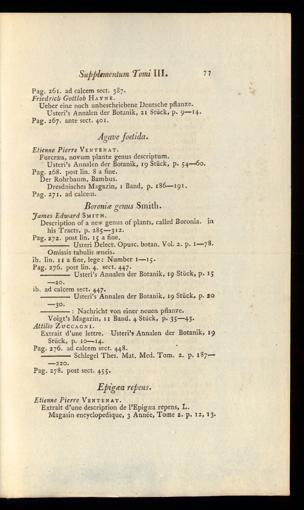 Supplementum Tomi III. 77
Pag. 261. ad calcem sect. 387.
Friedrich Gottlob HAYNE.
Ueber eine noch unbeschriebene Deutsche pflanze.
Usteri's Annalen der Botanik, 21 Stück, p. 9—14.
Pag. 267. ante sect. 401.
Agave foetida.
Etienne Pierre VENTENAT.
Furcræa, novum plantæ genus descriptum.
Usteri's Annalen der Botanik, 19 Stück, p. 54—60.
Pag. 268. post lin. 8 a fine.
Der Rohrbaum, Bambus.
Dresdnisches Magazin, 1 Band, p. 186—191.
Pag. 271. ad calcem.
Boroniæ genus Smith.
James Edward SMITH.
Description of a new genus of plants, called Boronia. in
his Tracts, p. 285—312.
Pag. 272. post lin. 15 a fine.
——— Usteri Delect. Opusc. botan. Vol. 2. p. 1—78.
Omissis tabulis æneis.
ib. lin. 11 a fine, lege: Number 1—15.
Pag. 276. post lin. 4. sect. 447.
——— Usteri's Annalen der Botanik, 19 Stück, p. 15
—20.
ib. ad calcem sect. 447.
——— Usteri's Annalen der Botanik, 19 Stück, p. 20
—30.
———: Nachricht von einer neuen pflanze.
Voigt's Magazin, 11 Band. 4 Stück, p. 35—45.
Attilio ZUCCAGNI.
Extrait d'une lettre. Usteri's Annalen der Botanik, 19
Stück, p. 10—14.
Pag. 276. ad calcem sect. 448.
——— Schlegel Thes. Mat. Med. Tom. 2. p. 187—
—220.
Pag. 278. post sect. 455.
Epigæa repens.
Etienne Pierre VENTENAT.
Extrait d'une description de l'Epigæa repens, L.
Magasin encyclopedique, 3 Année, Tome 2. p. 12, 13.